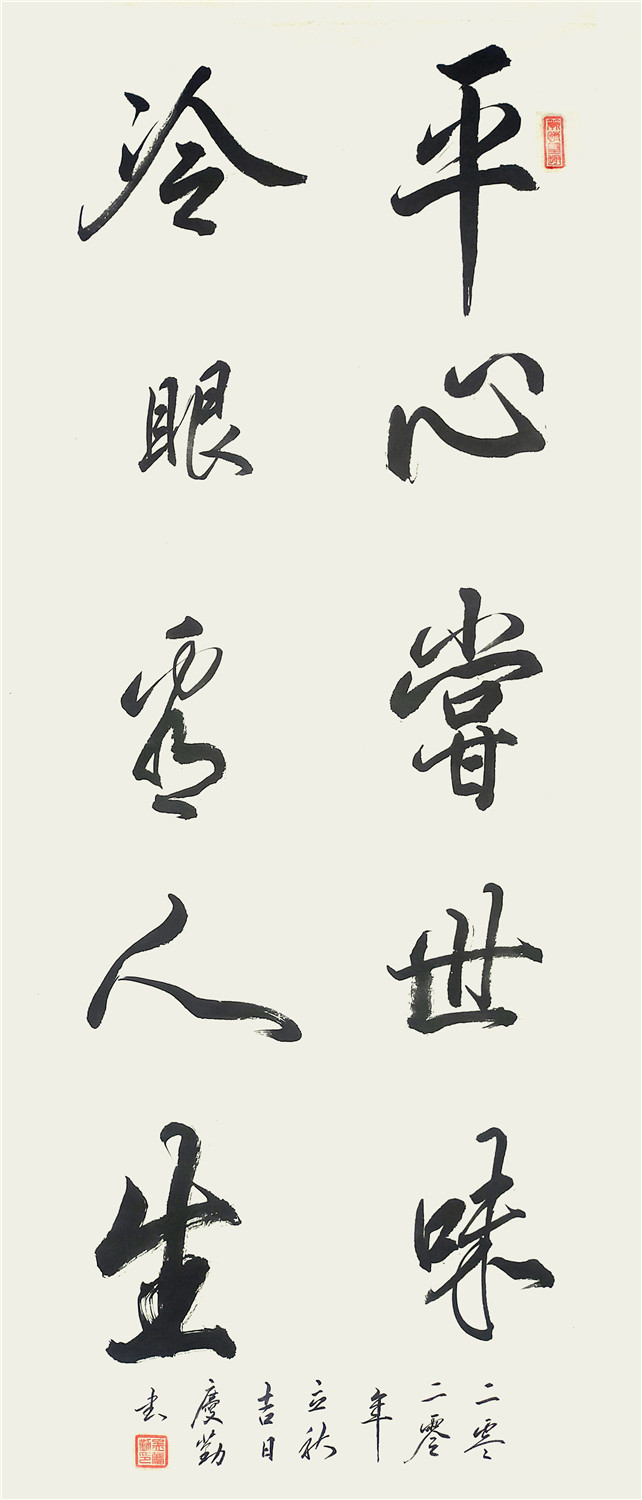 平心嘗世味
冷眼看人生
二零
二零
年
立秋
吉日
慶勤
书